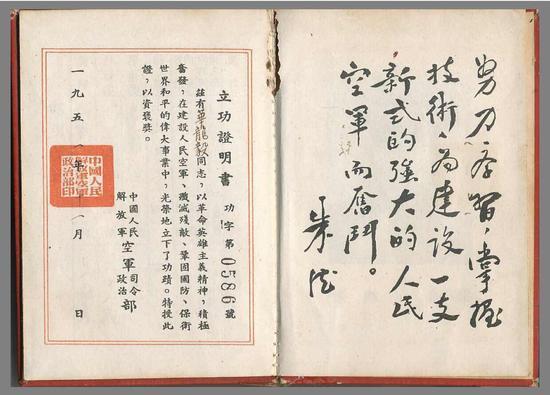 努力学習,掌握
技術,為建設一支
新式的強大的人民
空軍而奮鬥。
朱德
立功證明書
功字第0586號
茲有華龍毅同志,以革命英雄主義精神,積極
奮發,在建設人民空軍、殲滅殘敵、鞏固國防、保衛
世界和平的偉大事業中,光榮地立下了功績。特授此
證,以資褒獎。
中國人民
解放軍
空軍
司令
政治
部
一九五一年十一月 日
中國人民
解放軍空軍
政治部印